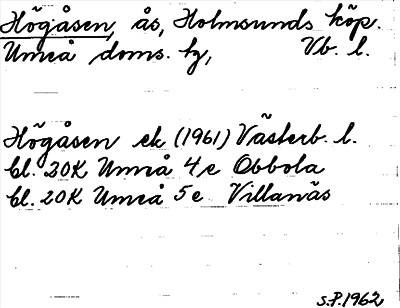 Högåsen, ås, Holmsunds köp.
Umeå doms. hg, Vb. l.
Högåsen ek (1961) Västerb. l.
bl. 20K Umeå 4e Obbola
bl. 20K Umeå 5e Villanäs
S.P. 1962